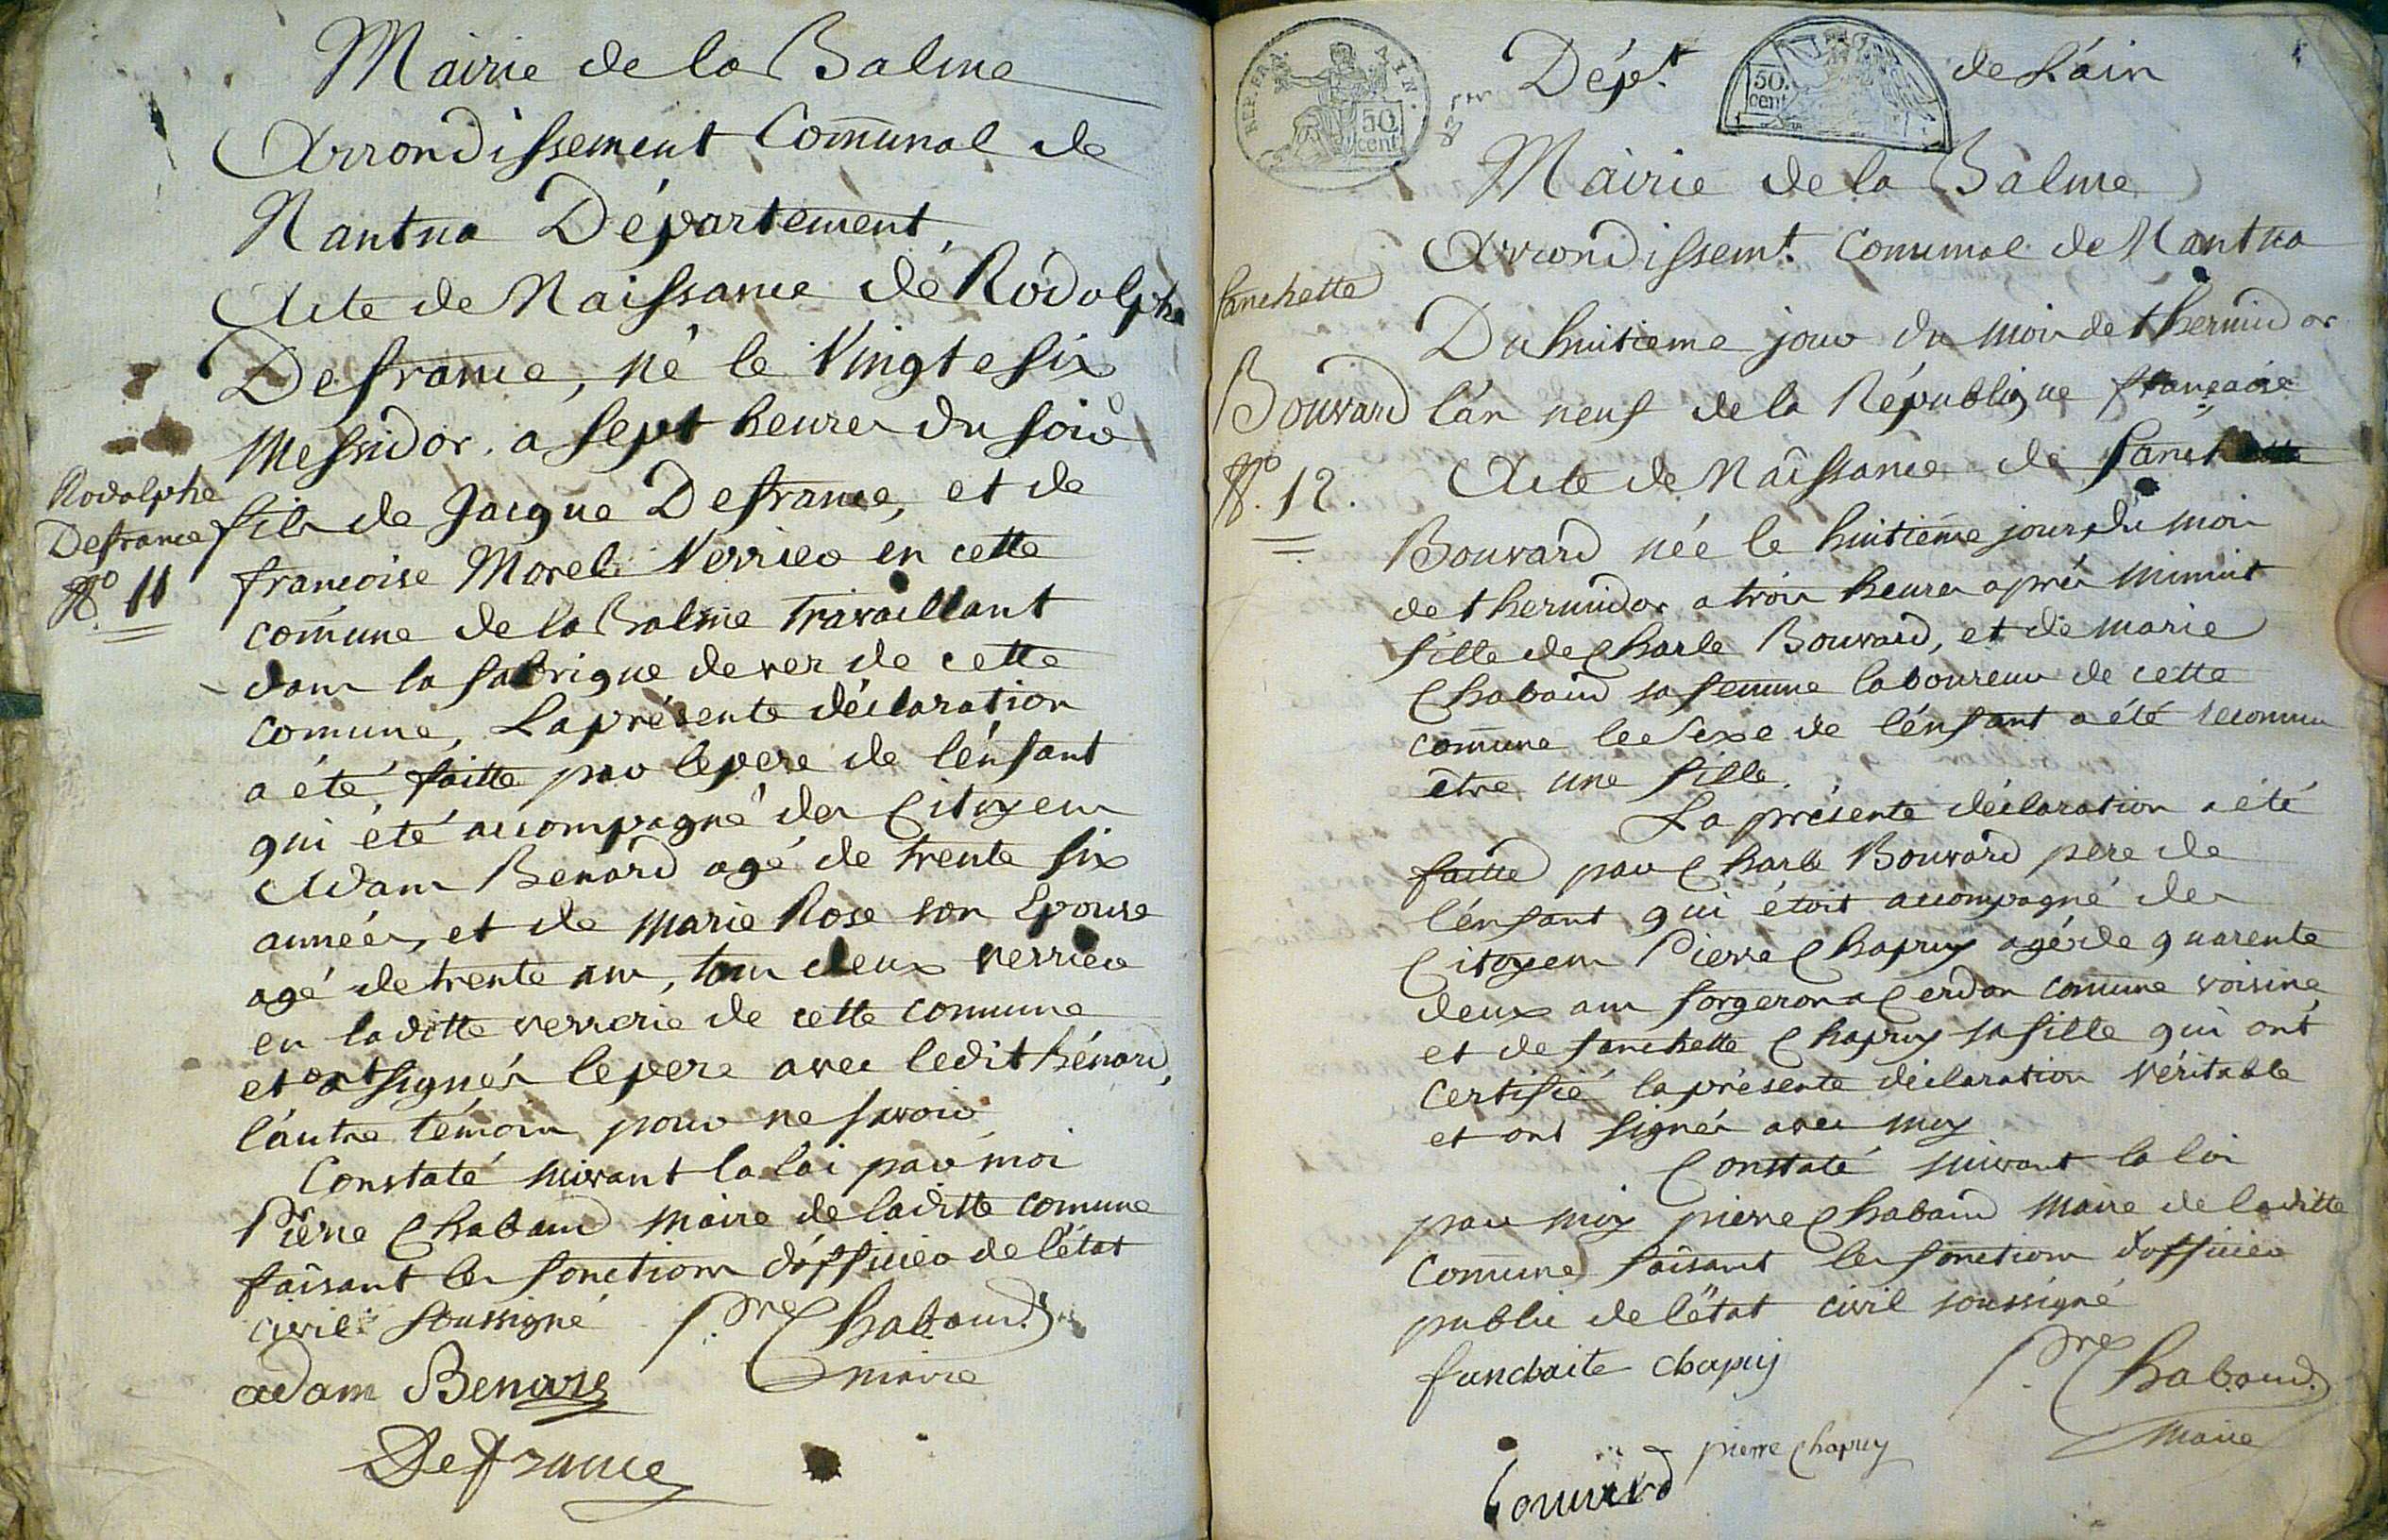 Mairie de la Balme
Arrondissement Comunal de
Nantua Département
Acte de Naissance de Rodolphe
Defrance, né le Vingt e six
Messidor. a sept heures du soir
fils de Jacque Defrance, et de
francoise Morel Verrier en cette
comune de la Balme travaillant
dans la fabrique de ver de cette
comune, La présente déclaration
a été faitte par le pere de l'énfant
qui été accompagné des Citoyens
Adam Benard agé de trente six
années, et de Marie Rose son Epouse
agé de trente ans, tous deux verriers
en laditte verrerie de cette comune
et ont signés le pere avec ledit bénard,
l'autre témoin pour ne savoir
Constaté suivant la loi par moi
Pierre Chabaud Maire de laditte comune
faisant les fonctions d'officier de l'état
civil soussigné Pre Chabaud
maire
adam Benard
Defrance
Rodolphe
Defrance
No. 11
REP. FRA. AIN.
50 cent
Dépt. de l'áin
50. cent
Mairie de la Balme
Arrondissemt. Comunal de Nantua
Du huitieme jour du mois de thermidor
l'án neuf de la République française
Acte de Naissance de fanchette
Bouvard née le huitième jour du mois
de thermidor a trois heures après minuit
fille de Charle Bouvard, et de marie
Chabaud sa femme laboureur de cette
comune le sexe de l'énfant a été reconnu
être une fille
La présente déclaration a été
faitte par Charle Bouvard pere de
l'énfant qui étoit accompagné des
Citoyens Pierre Chapuy agés de quarente
deux ans forgeron a Cerdon comune voisine
et de fanchette Chapuy sa fille qui ont
certifié la présente déclaration véritable
et ont signés avec moy
Constaté suivant la loi
par moy pierre Chabaud Maire de laditte
Comune faisant les fonctions d'officier
public de l'état civil soussigné
fanchaite chapuy Pre Chabaud
maire
pierre Chapuy
bouvard
fanchette
Bouvard
No. 12.